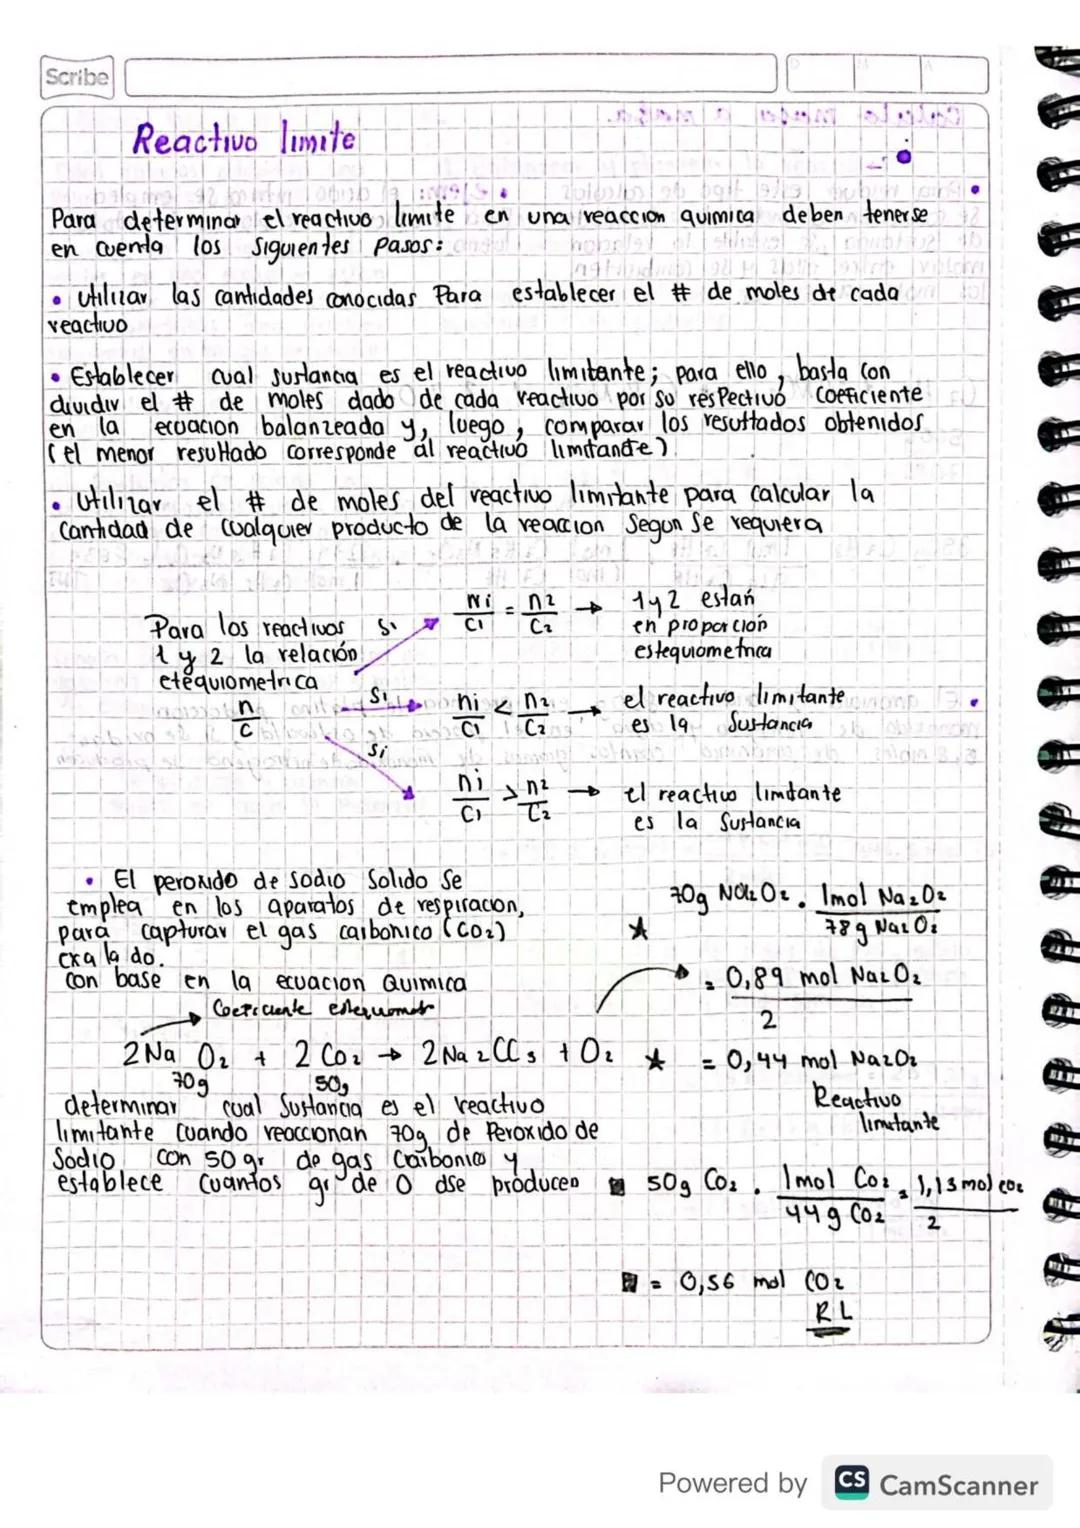 Scribe
Reactivo limite
Para determinar el reactivo limite en una reaccion quimica deben tenerse
en cuenta los siguientes pasos:
• Utilizar las cantidades conocidas Para establecer el # de moles de cada
reactivo
• Establecer cual sustancia es el reactivo limitante; para ello, basta con
dividir el # de moles dado de cada reactivo por su respectivo coeficiente
en la ecuacion balanzeada y, luego, comparar los resultados obtenidos
(el menor resultado corresponde al reactivo limitante)
• Utilizar el # de moles del reactivo limitante para calcular la
cantidad de cualquier producto de la reaccion segun se requiera
Para los reactivos
1 y 2 la relación
etequiometrica
n/c
Si → ni/C1 = n2/C2 → 1 y 2 estan
en proporcion
estequiometrica
Si → ni/C1 < n2/C2 → el reactivo limitante
es la Sustancia
Si → ni/C1 > n2/C2 → el reactivo limitante
es la Sustancia
• El peroxido de sodio Solido Se
emplea en los aparatos de respiracion,
para capturar el gas carbonico (CO2)
exalado.
con base en la ecuacion Quimica
→ Coeficiente estequiometr
2Na O2 + 2 CO2 → 2Na2CC3 + O2
70g 50g
determinar cual Sustancia es el reactivo
limitante cuando reaccionan 70g de Peroxido de
Sodio con 50 gr de gas Carbonico y
establece cuantos gr de O dse producen
70g Na2O2 . 1mol Na2O2 / 78g Na2O2
★
= 0,89 mol Na2O2 / 2
★ = 0,44 mol Na2O2
Reactivo
limitante
■ 50g CO2 . 1mol CO2 / 44g CO2 = 1,13 mol CO2 / 2
■ = 0,56 mol CO2
RL
Powered by CS CamScanner